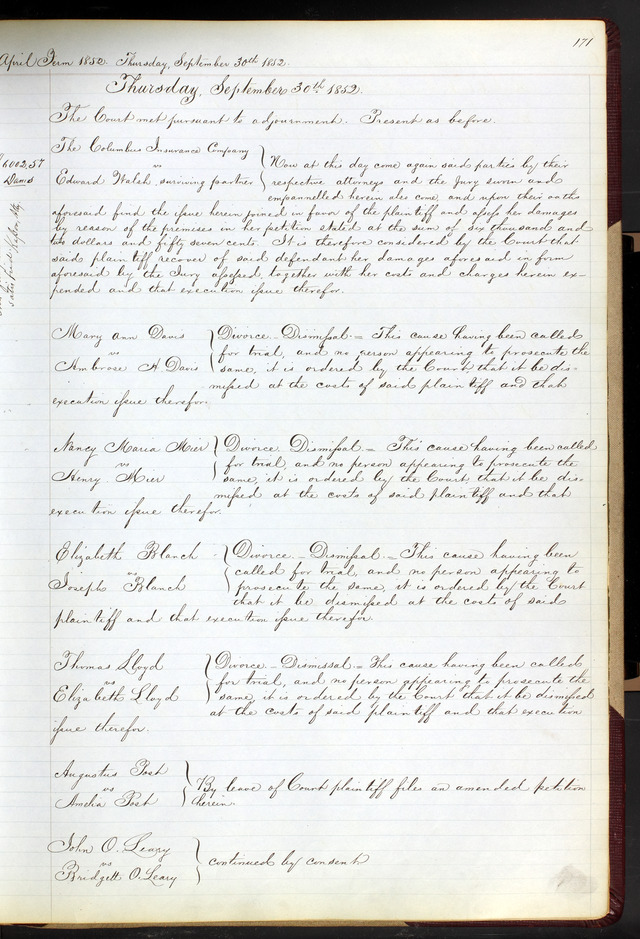 171
April Term 1852. Thursday, September 30th 1852.
Thursday, September 30th 1852.
The Court met pursuant to adjournment. Present as before.
The Columbus Insurance Company
vs
Edward Walsh, surviving partner
$6002.57
Dam's
Now at this day come again said parties by their
respective attorneys and the Jury sworn and
empannelled herein also come, and upon their oaths
aforesaid find the issue herein joined in favor of the plaintiff and assess her damages
by reason of the premises in her petition stated at the sum of six thousand and
two dollars and fifty seven cents. It is therefore considered by the Court that
said plaintiff recover of said defendant her damages aforesaid in form
aforesaid by the Jury assessed, together with her costs and charges herein ex-
pended and that execution issue therefor.
Mary Ann Davis
vs
Ambrose H Davis
Divorce - Dismissal = This cause having been called
for trial, and no person appearing to prosecute the
same, it is ordered by the Court that it be dis-
missed at the costs of said plaintiff and that
execution issue therefor.
Nancy Maria Mier
vs
Henry Mier
Divorce Dismissal = This cause having been called
for trial, and no person appearing to prosecute the
same, it is ordered by the Court that it be dis-
missed at the costs of said plaintiff and that
execution issue therefor.
Elizabeth Blanch
vs
Joseph Blanch
Divorce - Dismissal = This cause having been
called for trial, and no person appearing to
prosecute the same, it is ordered by the Court
that it be dismissed at the costs of said
plaintiff and that execution issue therefor.
Thomas Lloyd
vs
Elizabeth Lloyd
Divorce - Dismissal = This cause having been called
for trial, and no person appearing to prosecute the
same, it is ordered by the Court that it be dismissed
at the costs of said plaintiff and that execution
issue therefor.
Augustus Post
vs
Amelia Post
By leave of Court plaintiff files an amended petition
herein.
John O. Leary
vs
Bridgett O. Leary
continued by consent